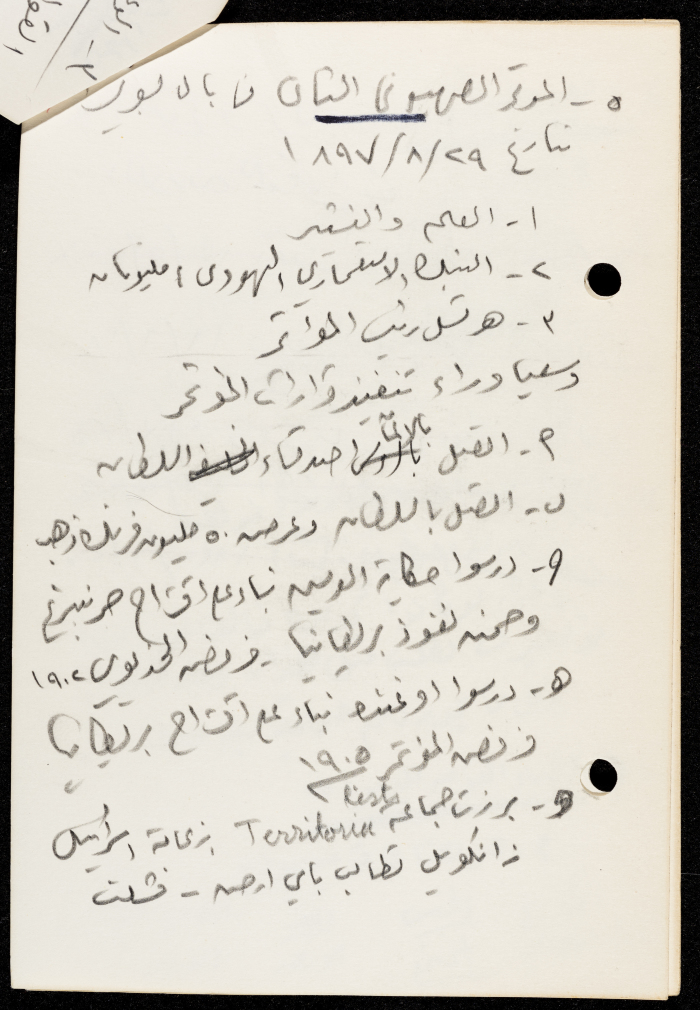 ٥ - المؤتمر الصهيوني الثاني في بال
بتاريخ ٢٩/٨/١٨٩٧
١- العلم والنشيد
٢- البنك الاستعماري اليهودي ٢ مليونان
٣- هرتسل رئيس المؤتمر
وسعيا وراء تنفيذ قرارات المؤتمر
٢- اتصل بالالمان اصدقاء السلطان
ب- اتصل بالسلطان وعرض ٥٠ مليون فرنك ذهب
درسوا حكاية العريش بناء على اقتراح
وضمن نفوذ بريطانيا - فرفض الخديوي ١٩٠٢
هـ- درسوا اوغنده بناء على اقتراح بريطانيا
فرفض المؤتمر ١٩٠٥
و- برزت جماعة Territoria بزعامة اسرائيل
زانكويل تطالب باي ارض - فشلت